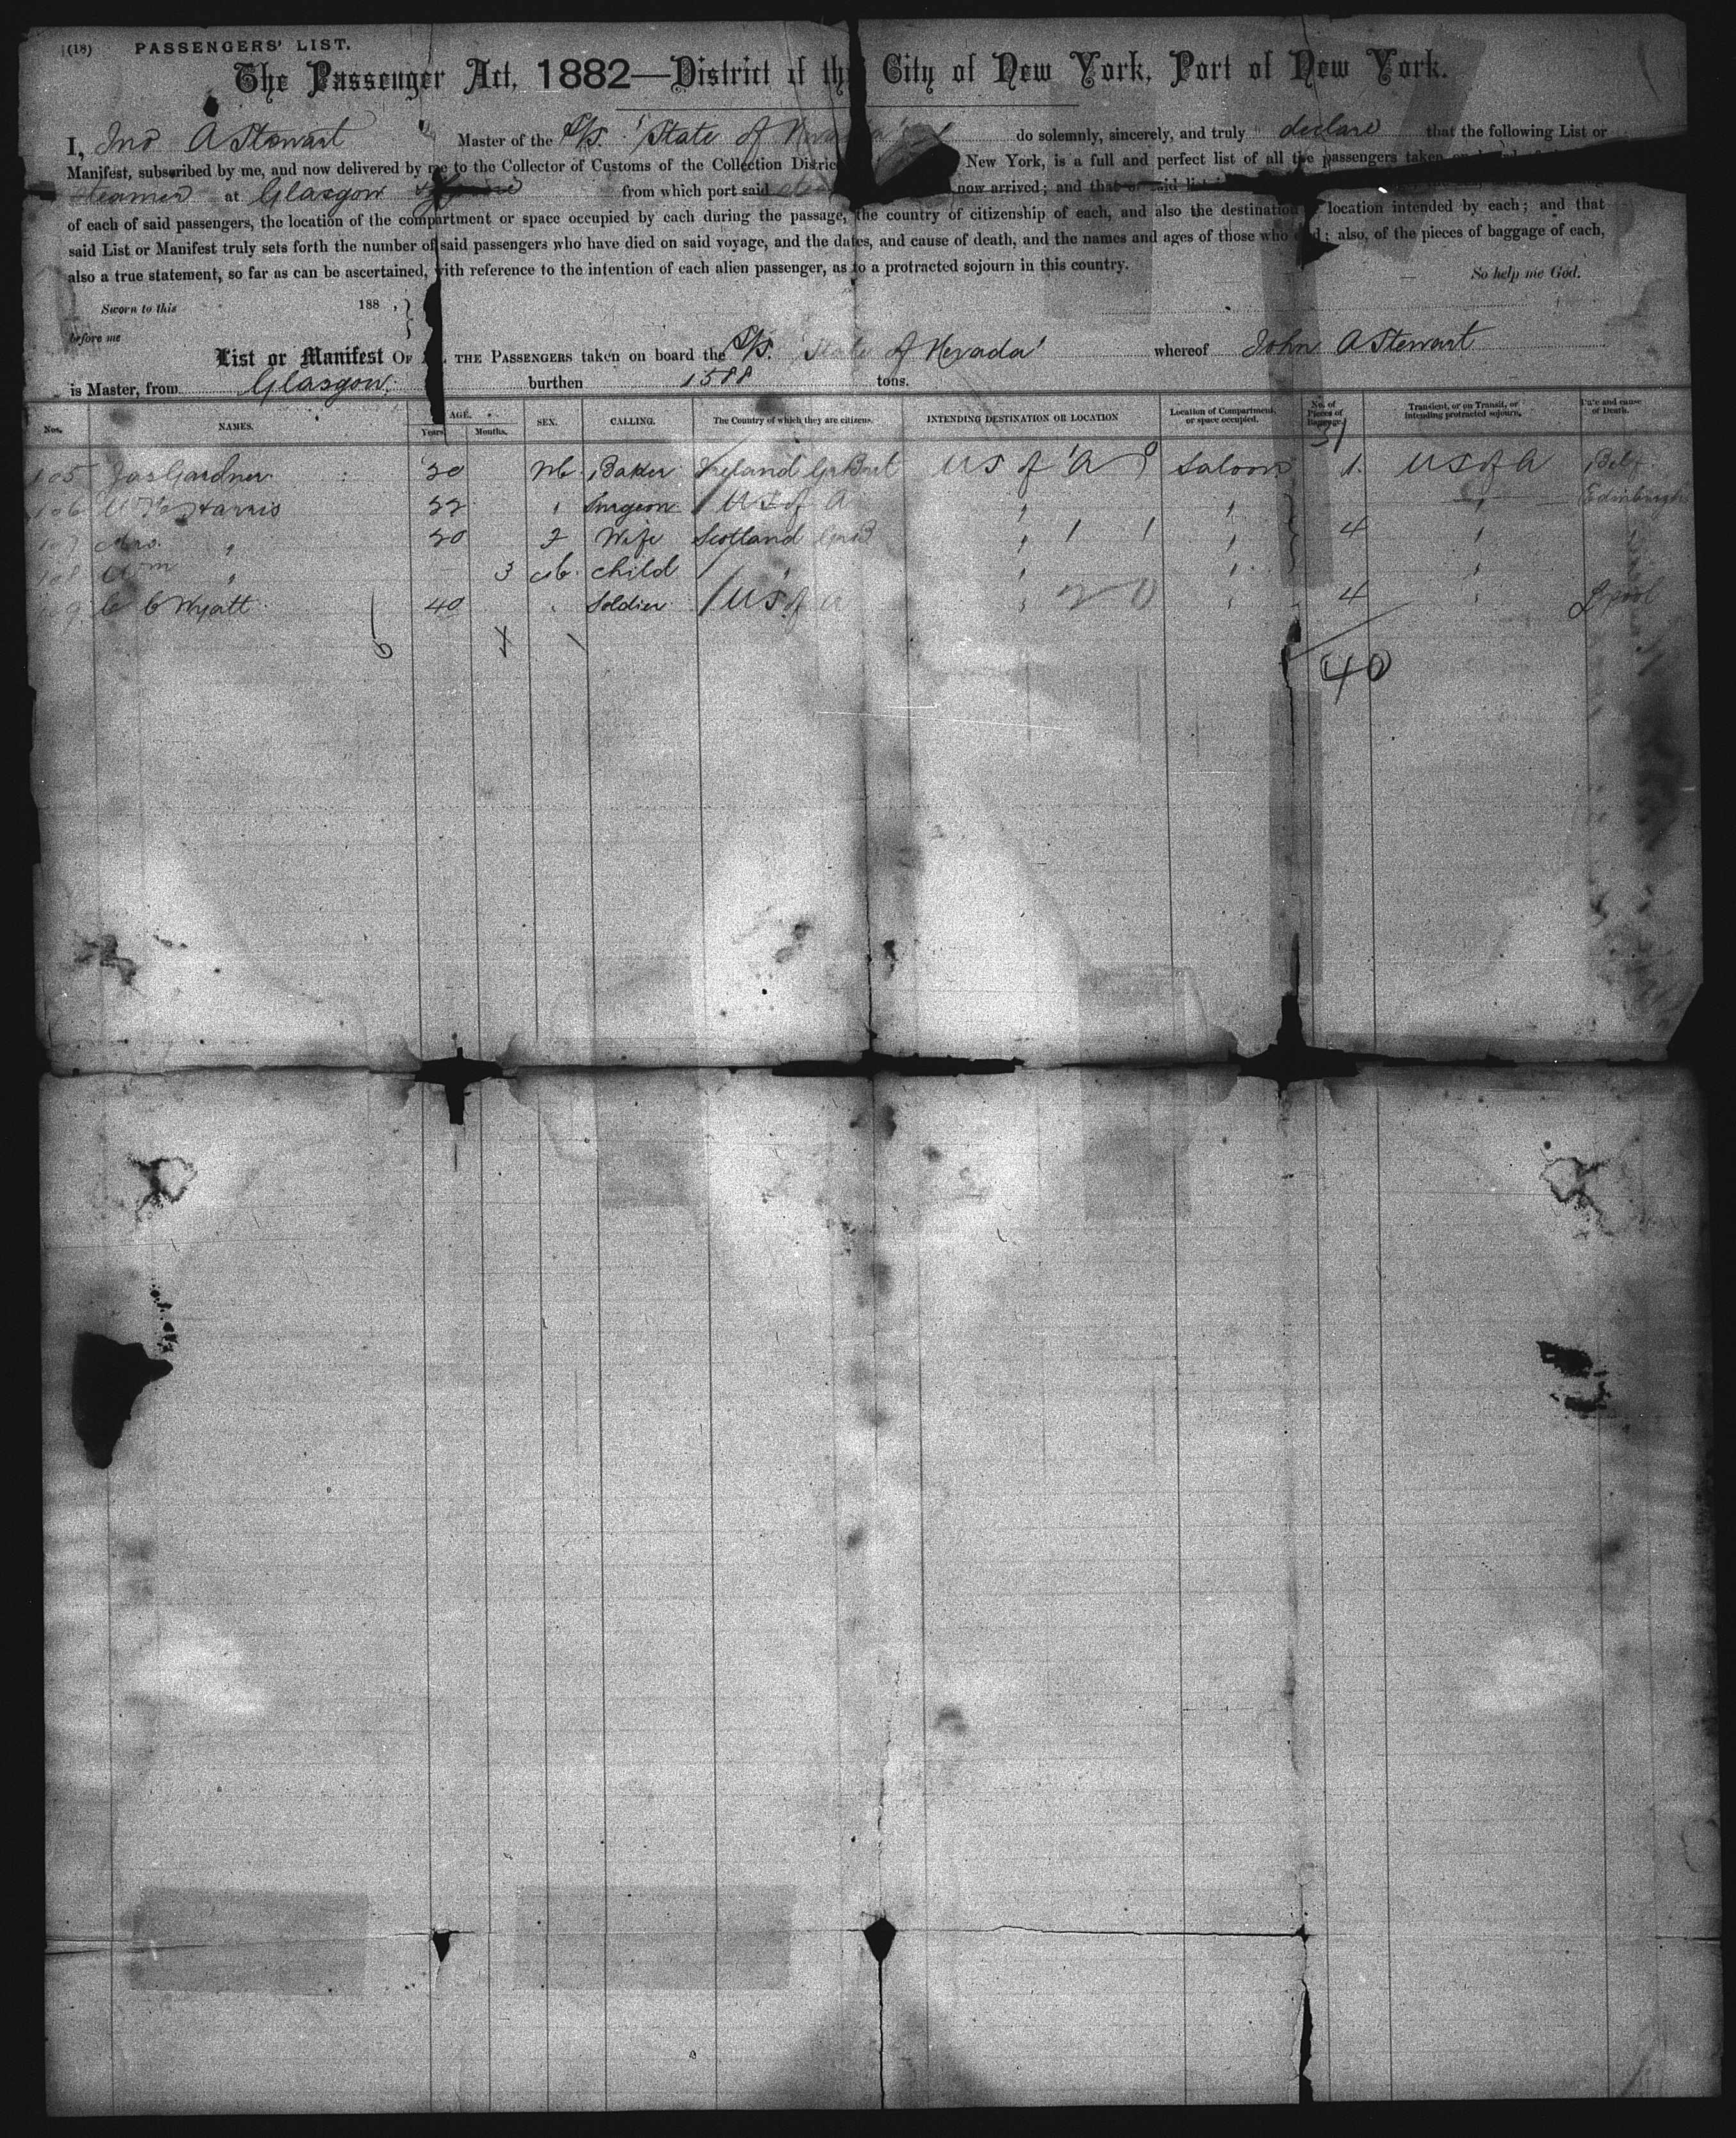 (18) PASSENGERS' LIST.
The Passenger Act, 1882—District of the City of New York, Port of New York.
I, Jno A Stewart Master of the S/S. 'State of Nevada' do solemnly, sincerely, and truly declare that the following List or
Manifest, subscribed by me, and now delivered by me to the Collector of Customs of the Collection District New York, is a full and perfect list of all the passengers taken on board
steamer at Glasgow from which port said now arrived; and that on said list
of each of said passengers, the location of the compartment or space occupied by each during the passage, the country of citizenship of each, and also the destination or location intended by each; and that
said List or Manifest truly sets forth the number of said passengers who have died on said voyage, and the dates, and cause of death, and the names and ages of those who died; also, of the pieces of baggage of each,
also a true statement, so far as can be ascertained, with reference to the intention of each alien passenger, as to a protracted sojourn in this country. So help me God.
Sworn to this 188 ,
before me
List or Manifest OF THE PASSENGERS taken on board the S/S. State of Nevada' whereof John A Stewart
is Master, from Glasgow. burthen 1588 tons.
Nos. NAMES. AGE. Years Months. SEX. CALLING. The Country of which they are citizens. INTENDING DESTINATION OR LOCATION Location of Compartment, or space occupied. No. of Pieces of Baggage. Transient, or on Transit, or intending protracted sojourn. Date and cause of Death.
31
105 Jas Gardner 20 M. Baker Ireland Gr Brit US of A Saloon 1 US of A Belf
106 Harris 22 " Surgeon US of A " " " Edinburgh
107 Mrs. " 20 F Wife Scotland Gr B " 1 1 " 4 "
108 Wm " 3 M. child " " " "
109 C C Wyatt 40 " Soldier US of A " 20 " 4 " L'pool
6
40